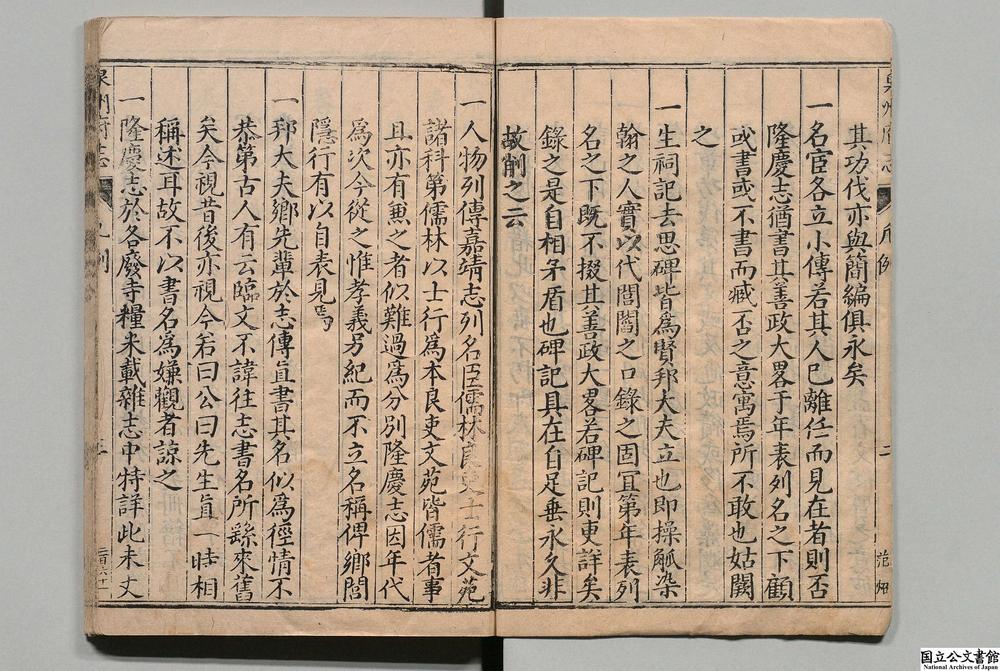 泉州府志
凡例
二
其功伐亦與簡編俱永矣
一名宦各立小傳若其人已離任而見在者則否
隆慶志猶書其善政大畧于年表列名之下顧
或書或不書而臧否之意寓焉所不敢也姑闕
之
一生祠記去思碑皆為賢邦大夫立也即操觚染
翰之人實以代閭閻之口錄之固冝第年表列
名之下既不掇其善政大畧若碑記則更詳矣
錄之是自相矛盾也碑記具在自足垂永久非
故削之云
一人物列傳嘉靖志列名臣儒林良吏士行文苑
諸科第儒林以士行為本良吏文苑皆儒者事
且亦有兼之者似難過為分別隆慶志因年代
為次今從之惟孝義另紀而不立名稱俾鄉閭
隱行有以自表見焉
一邦大夫鄉先輩於志傳直書其名似為徑情不
恭第古人有云臨文不諱往志書名所繇來舊
矣今視昔後亦視今若曰公曰先生直一時相
稱述耳故不以書名為嫌觀者諒之
一隆慶志於各廢寺糧米載雜志中特詳此未丈
泉州府志
凡例
三
二百六十一
国立公文書館
National Archives of Japan